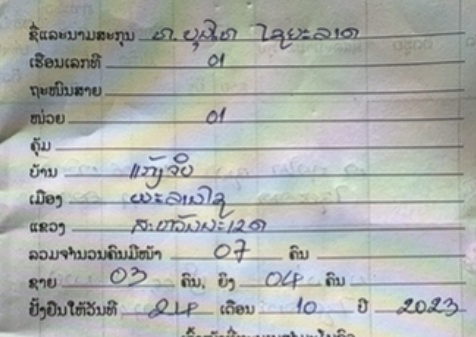 ຊື່ແລະນາມສະກຸນ ທ. ບຸນມີທ ໄຊຍະລາດ
ເຮືອນເລກທີ 01
ຖະໜົນສາຍ
ໜ່ວຍ 01
ຄຸ້ມ
ບ້ານ
ເມືອງ ພະລານໄຊ
ແຂວງ ສະຫວັນນະເຂດ
ລວມຈຳນວນຄົນມີໜ້າ 07 ຄົນ
ຊາຍ 03 ຄົນ, ຍິງ 04 ຄົນ
ຢັ້ງຢືນໃຫ້ວັນທີ 24 ເດືອນ 10 ປີ 2023